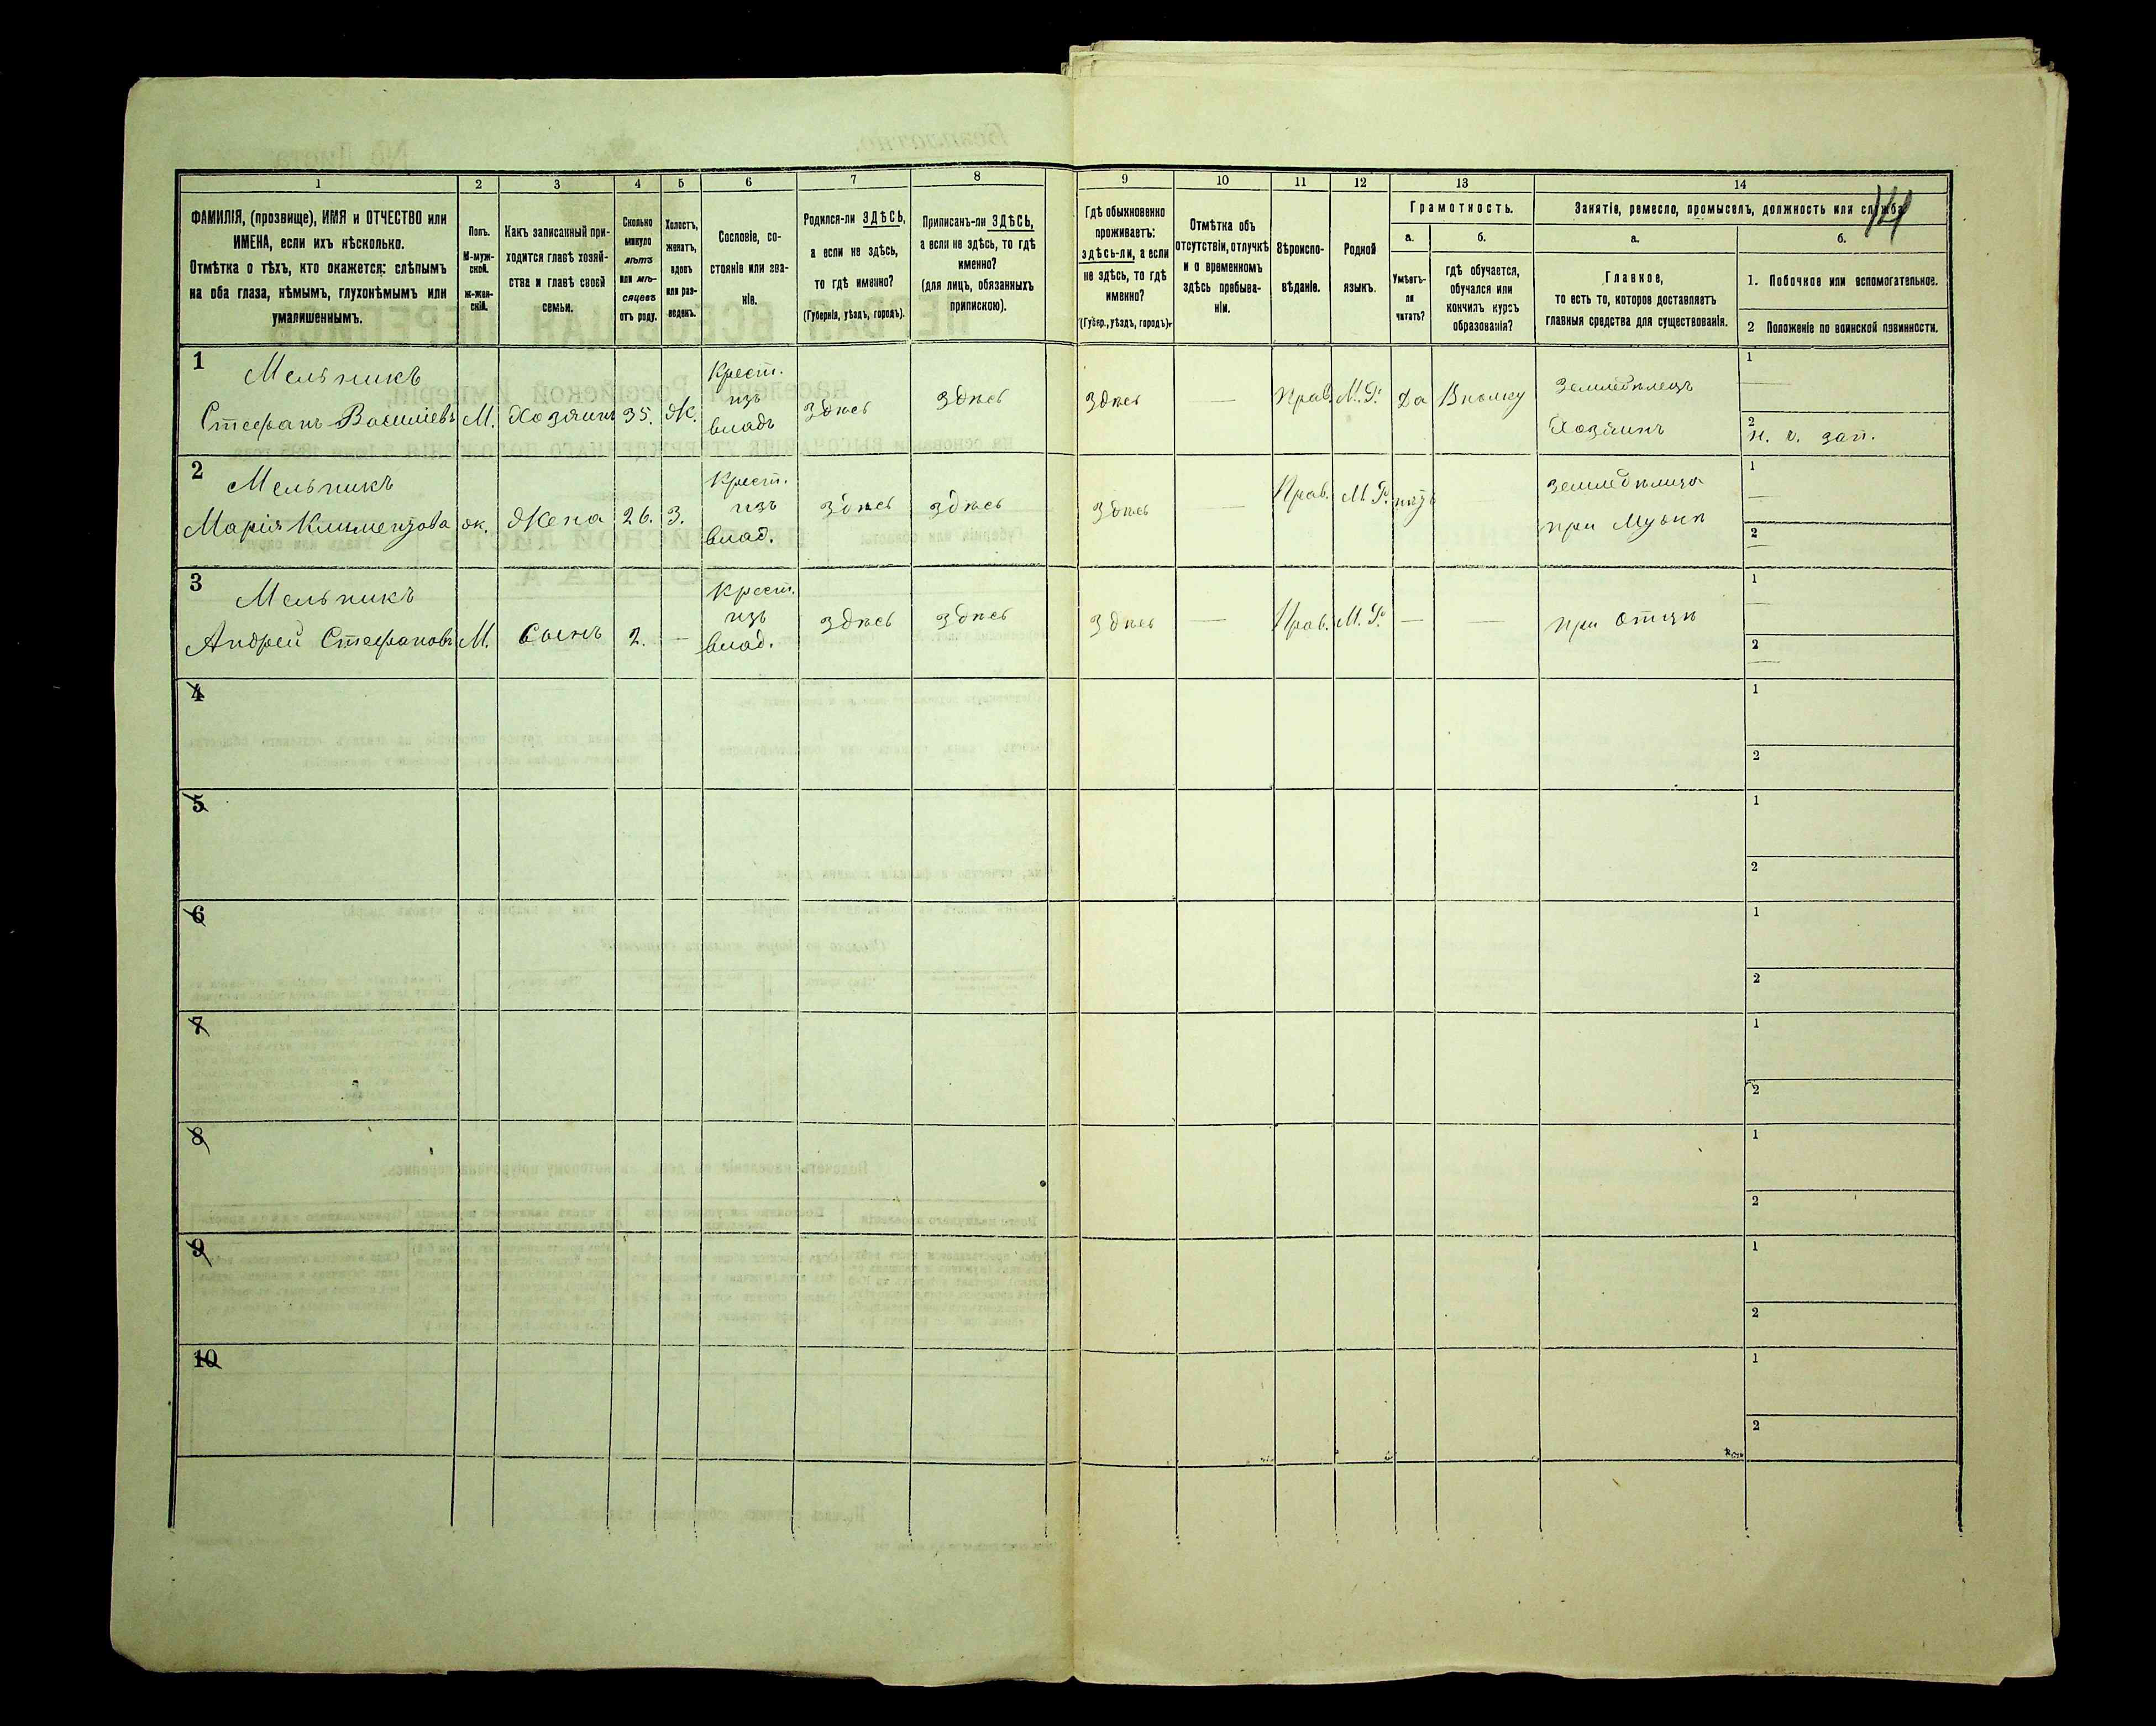 1 2 3 4 5 6 7 8 9 10 11 12 13 14
ФАМИЛІЯ, (прозвище), ИМЯ и ОТЧЕСТВО или
ИМЕНА, если ихъ нѣсколько.
Отмѣтка о тѣхъ, кто окажется: слѣпымъ
на оба глаза, нѣмымъ, глухонѣмымъ или
умалишеннымъ.
Полъ.
М-муж-
ской.
ж-жен-
скій.
Какъ записанный при-
ходится главѣ хозяй-
ства и главѣ своей
семьи.
Сколько
минуло
лѣтъ
или мѣ-
сяцевъ
отъ роду.
Холостъ,
женатъ,
вдовъ
или раз-
веденъ.
Сословіе, со-
стояніе или зва-
ніе.
Родился-ли ЗДѢСЬ,
а если не здѣсь,
то гдѣ именно?
(Губернія, уѣздъ, городъ).
Приписанъ-ли ЗДѢСЬ,
а если не здѣсь, то гдѣ
именно?
(для лицъ, обязанныхъ
припискою).
Гдѣ обыкновенно
проживаетъ:
здѣсь-ли, а если
не здѣсь, то гдѣ
именно?
(Губер., уѣздъ, городъ).
Отмѣтка объ
отсутствіи, отлучкѣ
и о временномъ
здѣсь пребыва-
ніи.
Вѣроиспо-
вѣданіе.
Родной
языкъ.
Грамотность.
а.
Умѣетъ-
ли
читать?
б.
гдѣ обучается,
обучался или
кончилъ курсъ
образованія?
Занятіе, ремесло, промыселъ, должность или служба.
а.
Главное,
то есть то, которое доставляетъ
главныя средства для существованія.
б.
1. Побочное или вспомогательное.
2 Положеніе по воинской повинности.
1
Мельникъ
Стефанъ Васильевъ М. Хозяинъ 35. Ж.
Крест.
изъ
владъ
здѣсь здѣсь здѣсь — Прав. М. Р. Да В полку
Земледѣлецъ
Хозяинъ
1 —
2 н. ч. зап.
2
Мельникъ
Марія Климентова ж. Жена 26. З.
Крест.
изъ
влад.
здѣсь здѣсь здѣсь — Прав. М. Р. —
Земледѣлица
при Мужѣ
1 —
2 —
3
Мельникъ
Андрей Стефановъ М. Сынъ 2. —
Крест.
изъ
влад.
здѣсь здѣсь здѣсь — Прав. М. Р. — —
при Отцѣ
1 —
2 —
4
1
2
5
1
2
6
1
2
7
1
2
8
1
2
9
1
2
10
1
2